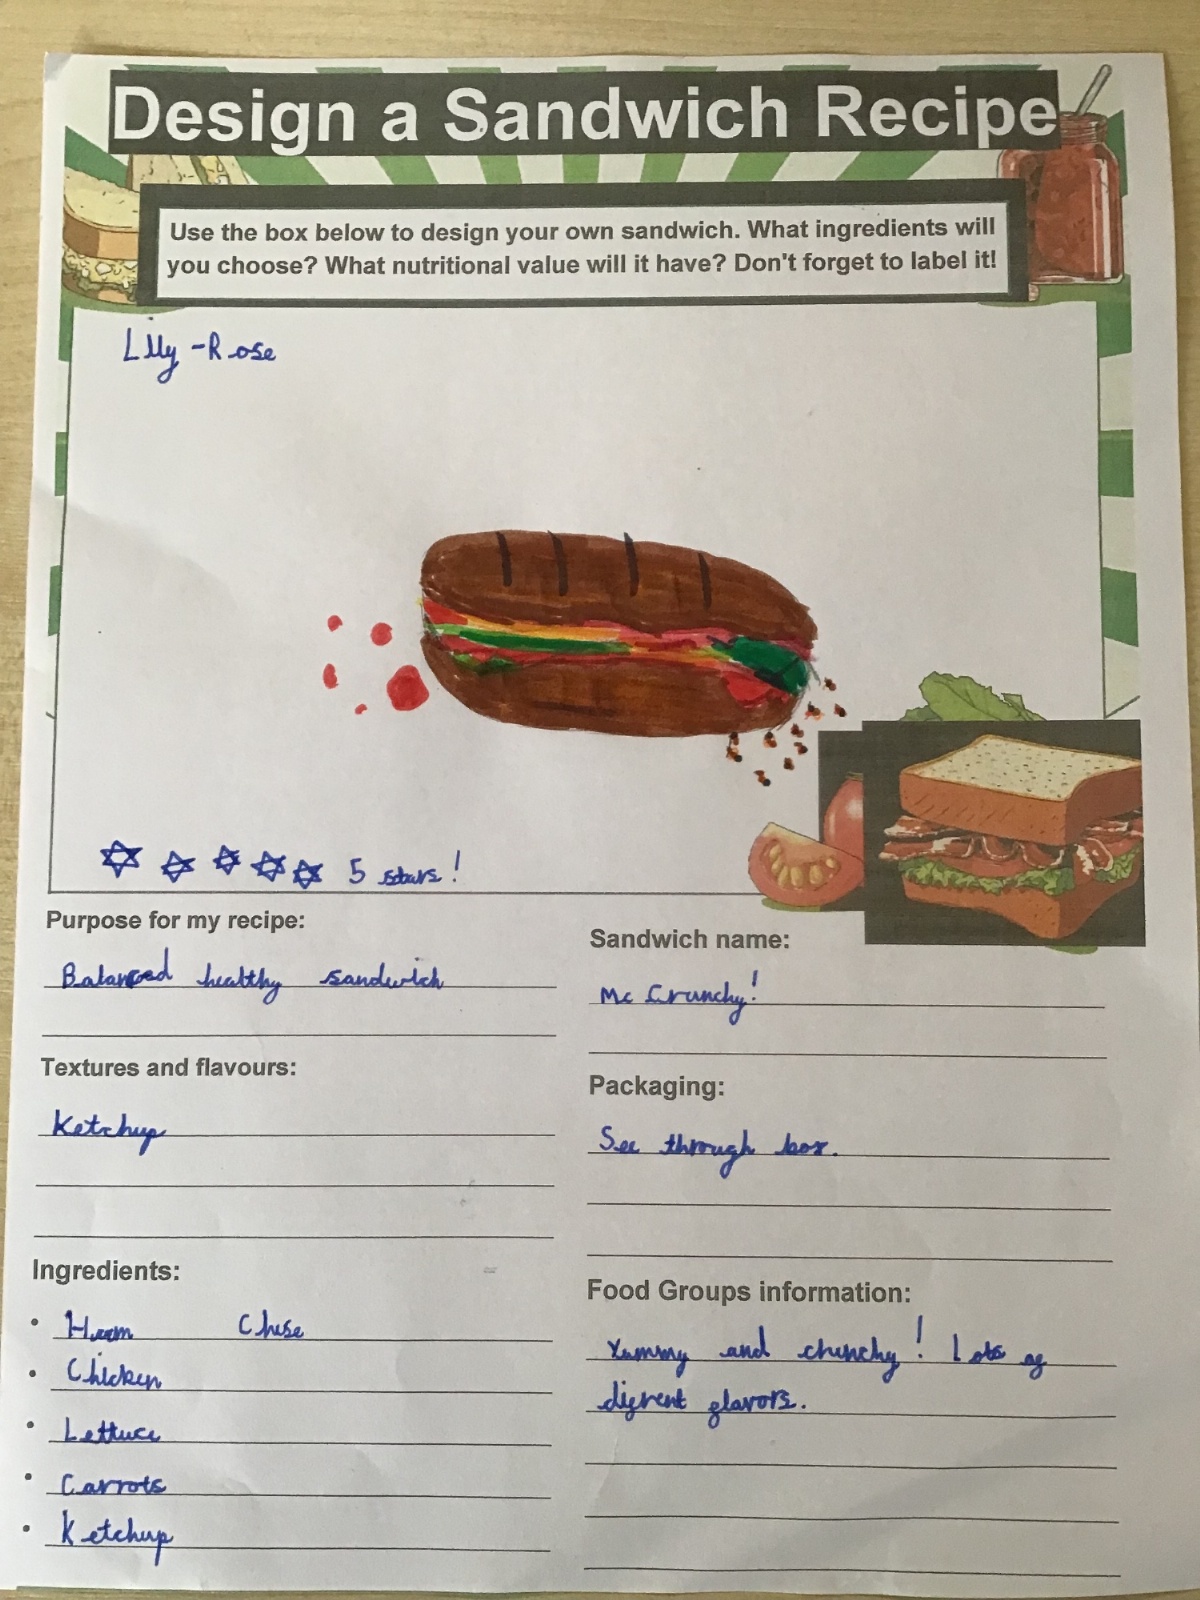 Design a Sandwich Recipe
Use the box below to design your own sandwich. What ingredients will
you choose? What nutritional value will it have? Don't forget to label it!
Lily-Rose
5 stars!
Purpose for my recipe:
Balanced healthy sandwich
Sandwich name:
Mc Crunchy!
Textures and flavours:
Ketchup
Packaging:
See through box.
Ingredients:
• Ham Chese
• Chicken
• Lettuce
• Carrots
• Ketchup
Food Groups information:
Yummy and chunchy! Lots of
difrent flavors.